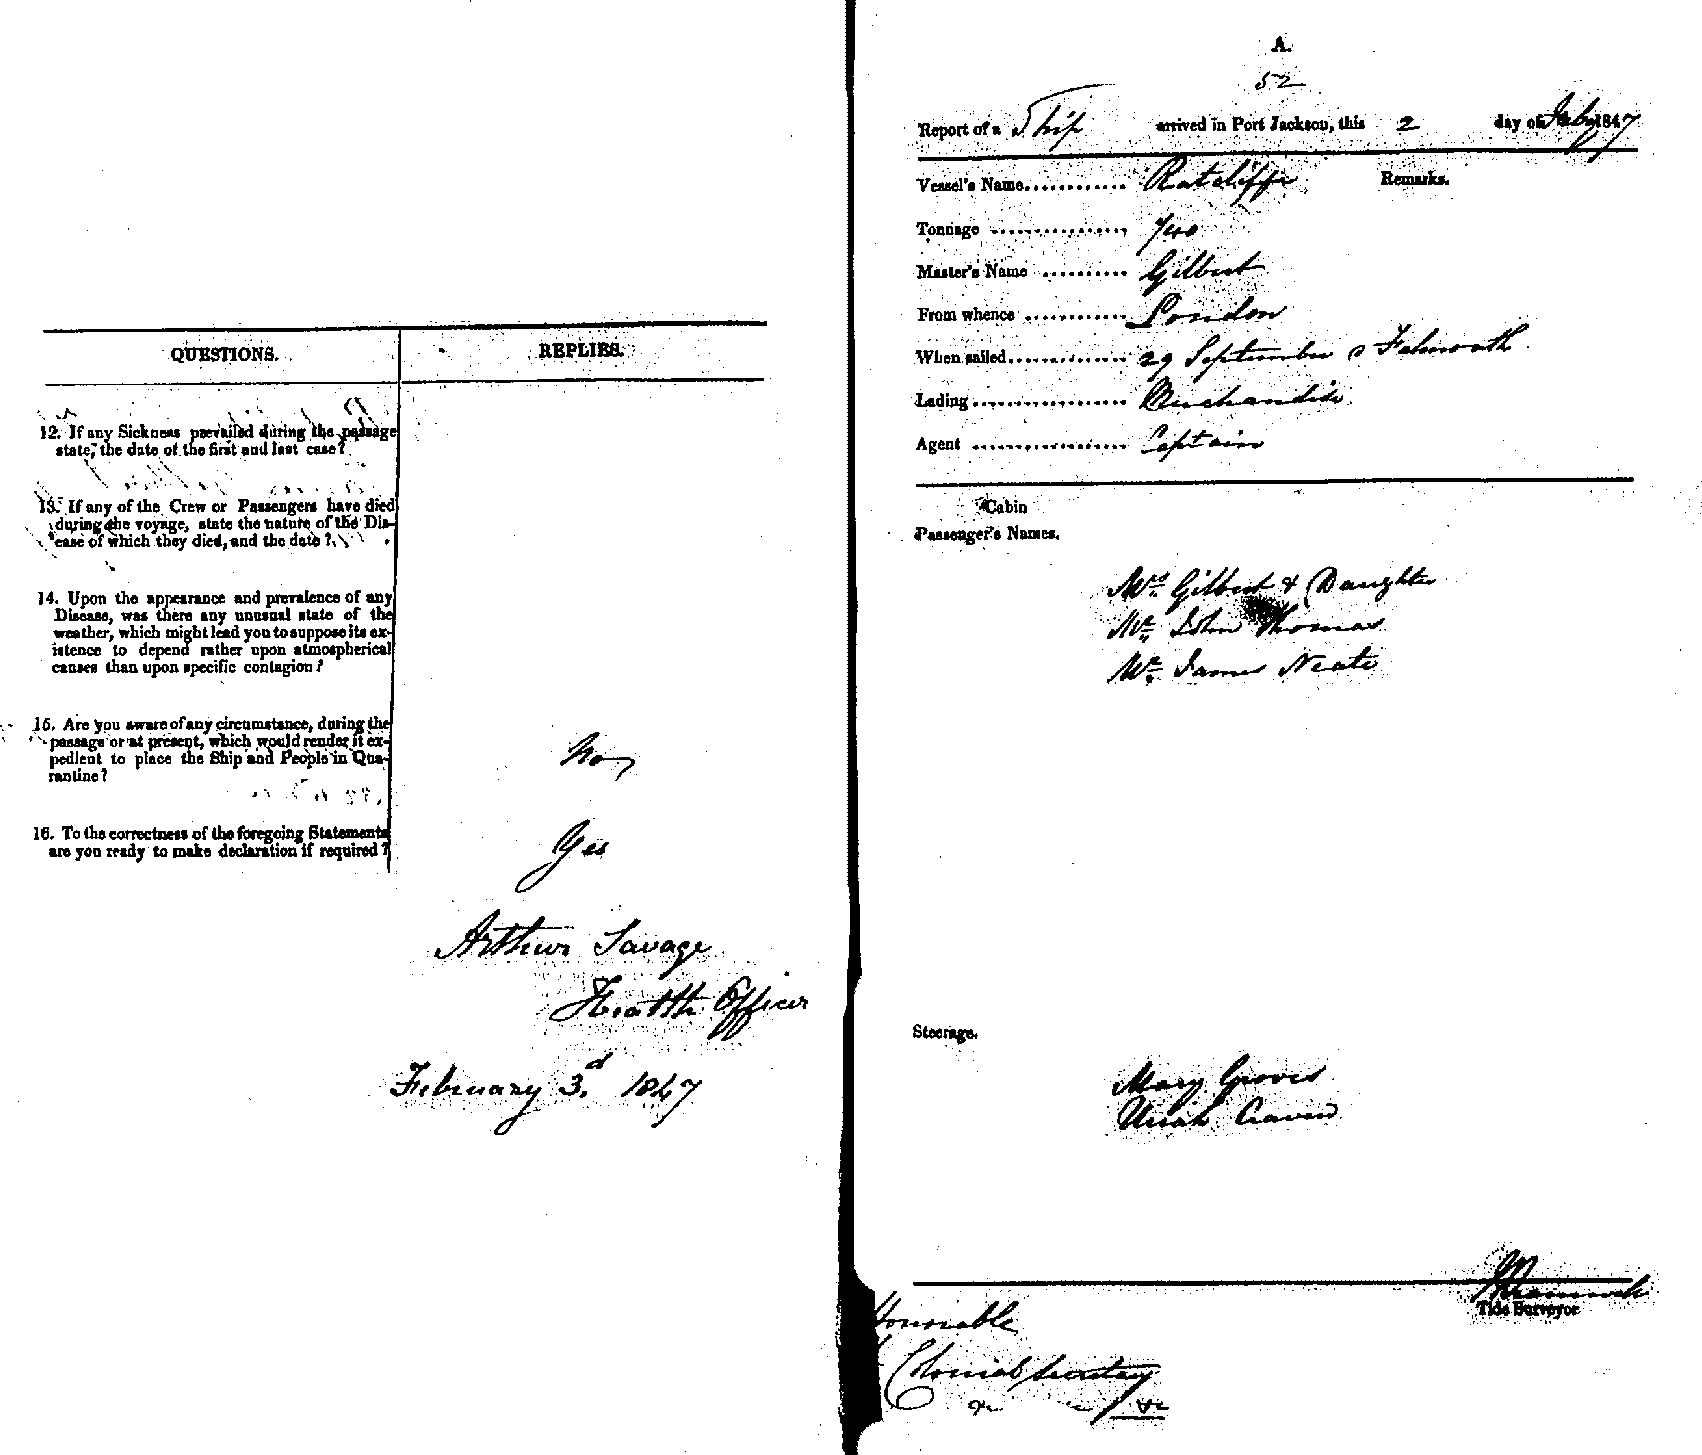 QUESTIONS.
REPLIES.
12. If any Sickness prevailed during the passage
state, the date of the first and last case?
13. If any of the Crew or Passengers have died
during the voyage, state the nature of the Dis-
ease of which they died, and the date?
14. Upon the appearance and prevalence of any
Disease, was there any unusual state of the
weather, which might lead you to suppose its ex-
istence to depend rather upon atmospherical
causes than upon specific contagion?
15. Are you aware of any circumstance, during the
passage or at present, which would render it ex-
pedient to place the Ship and People in Qua-
rantine?
No
16. To the correctness of the foregoing Statements
are you ready to make declaration if required?
Yes
Arthur Savage
Health Officer
February 3.d 1847
A.
52
Report of a Ship arrived in Port Jackson, this 2 day of Feby 1847
Vessel's Name............ Ratcliffe Remarks.
Tonnage ................ 740
Master's Name .......... Gilbert
From whence ............ London
When sailed.............. 29 September Falmouth
Lading .................. Merchandise
Agent .................. Captain
Cabin
Passenger's Names.
Mrs. Gilbert & Daughter
Mr. John Thomas
Mr. James Neate
Steerage.
Mary Groves
Uriah Craven
Tide Surveyor
Honorable
Colonial Secretary
&c &c